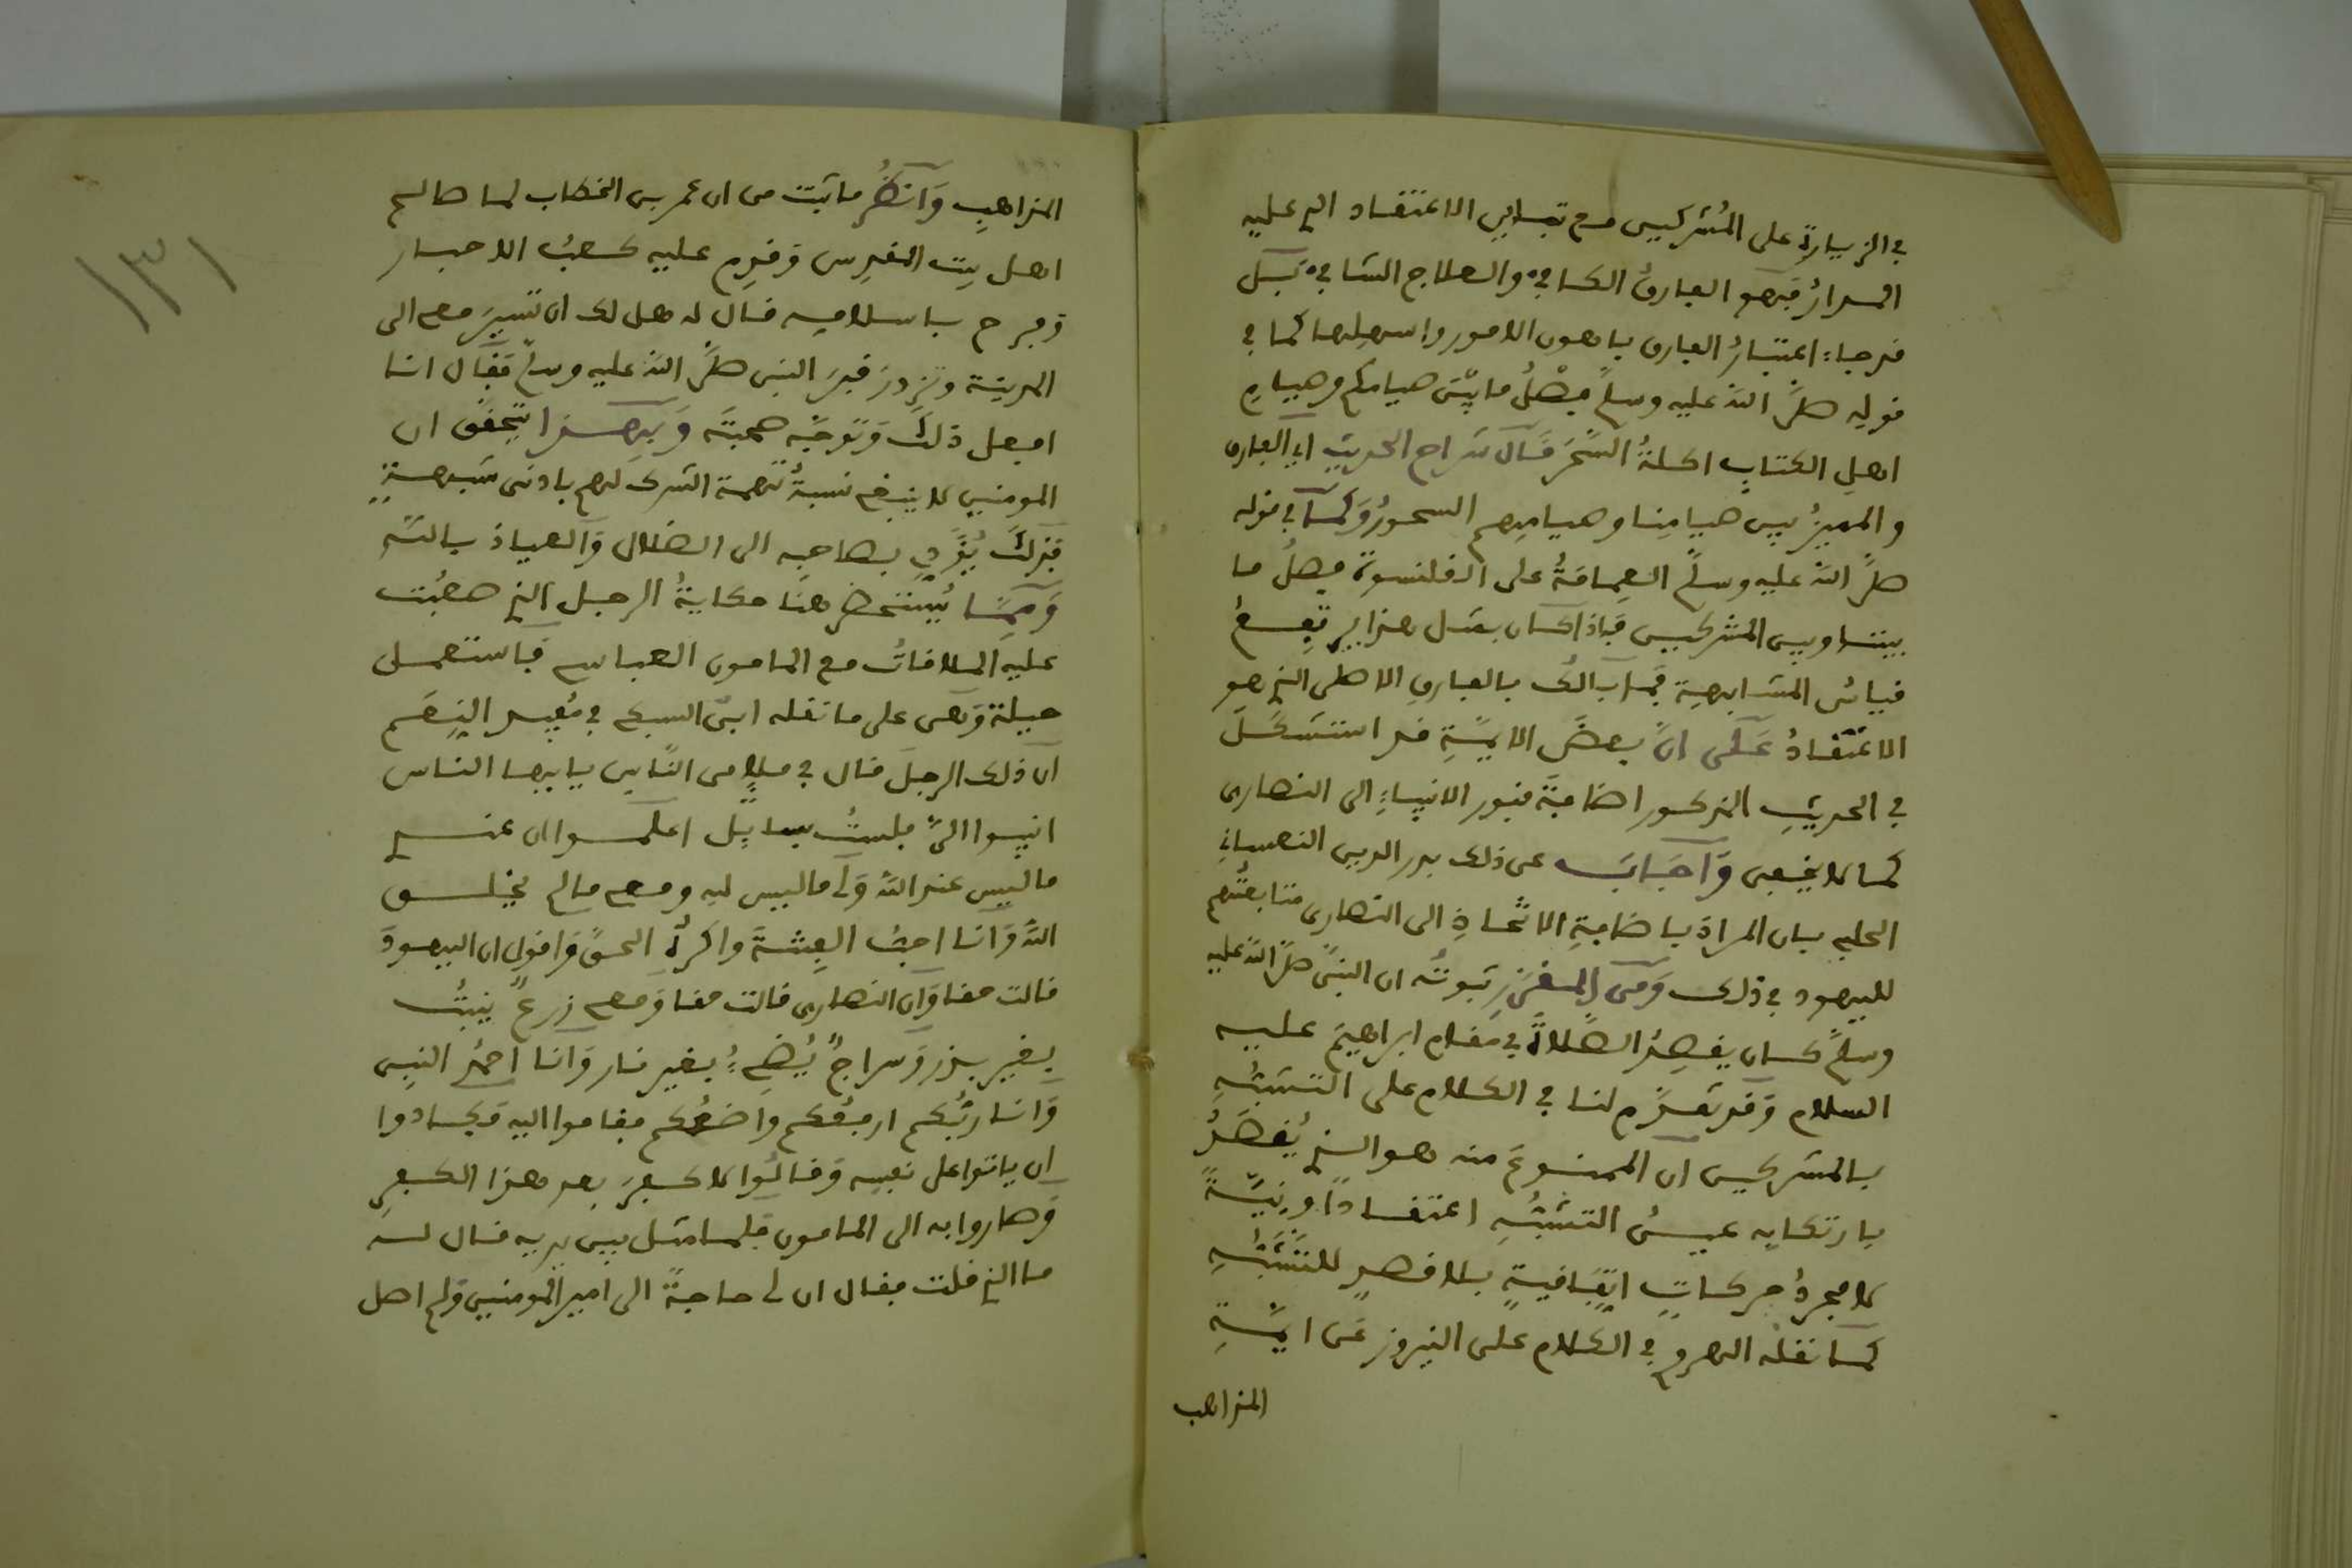 في الزيارة على المُشركين مع تباين الاعتقاد الذي عليه
المدارُ فهو الفارقُ الكافي والعلاج الشافي بَل
قد جاء اعتبارُ الفارق باهون الامور واسهلها كما في
قوله صلَّى الله عليه وسلم فصْلُ ما بيْن صيامكم وصيام
اهلِ الكتاب اكلةُ السَّحَر قال شراح الحديث اي الفارق
والمميزُ بين صيامِنا وصيامِهم السحورُ وَكما في قوله
صلَّى الله عليه وسلَّم العِمامَةُ على القلنسوة فصلُ ما
بيننا وبين المشركين فاذا كان بمثل هذا يرتفِعُ
قياسُ المشابهة فما بالك بالفارق الاصلى الذي هو
الاعتقادُ عَلَى انَّ بعضَ الايمَّةِ قد استشكَلَ
في الحديثِ المذكور اضافةَ قبور الانبياءِ الى النصارى
كما لا يخفى وَاجَابَ عن ذلك بدر الدين النعساني
الحلبي بان المرادَ باضافةِ الاتخاذِ الى النصارى متابعتُهم
لليهود في ذلك وَمن المقرَّر ثبوتُه ان النبيَّ صلَّى الله عليه
وسلَّم كان يقصِدُ الصَّلاةَ في مقام ابراهيمَ عليه
السلام وَقد تقدَّم لنا في الكلام على التشبُّهِ
بالمشركين ان الممنوعَ منه هو الذي يُقصَدُ
بارتكابه عينُ التشبُّهِ اعتقادًا ونيَّةً
لا مجردُ حركاتٍ اتفاقيةٍ بلا قصدٍ للتشبُّهِ
كما نقله الرهوني في الكلام على النيروز عَن ايمَّةِ
المذاهب
١٣١
المذاهبِ وَانظُر ما ثبت من ان عمر بن الخطاب لما صالح
اهل بيت المقدس وَقدِم عليه كعبُ الاحبار
وَفرح باسلامِه قال له هل لك ان تسيرَ معي الى
المدينة وتزورَ قبرَ النبي صلَّى الله عليه وسلم فقال انا
افعل ذلك وَتوجَّه صحبتَه وَبهذا يتحقق ان
المومنين لا ينبغي نسبةُ تهمة الشرك لهم بادنى شبهةٍ
فذلك يُؤدِّي بصاحبه الى الضلال وَالعياذ بالله
وَممَّا يُستحضر هنا حكايةُ الرجل الذي صعُبت
عليه الملاقاتُ مع المامون العباسي فاستعمل
حيلة وَهى على ما نقله ابنُ السبكي في مُعيد النِعَم
ان ذلك الرجلَ قال في ملإٍ من النَّاس يا ايها الناس
انيبوا اليَّ فلستُ بسائِل اعلموا ان عندي
ما ليس عند الله وَلي ما ليس له ومعي ما لم يخلق
اللهُ وَانا احبُ الفِتنَةَ واكرهُ الحقَّ وَاقول ان اليهودَ
قالت حقا وَان النصارى قالت حقا وَمعي زرعٌ ينبتُ
بغير بذر وَسراجٌ يُضِيءُ بغير نار وَانا احمدُ النبي
وَانا ربُّكم ارفعُكم واضعُكم فقاموا اليه وَكادوا
ان ياتوا على نفسِه وَقالُوا لا كفرَ بعد هذا الكفرِ
وَصاروا به الى المامون فلما مثل بين يديه قال له
ما الذي قلت فقال ان لي حاجةً الى امير المومنين وَلم اصل